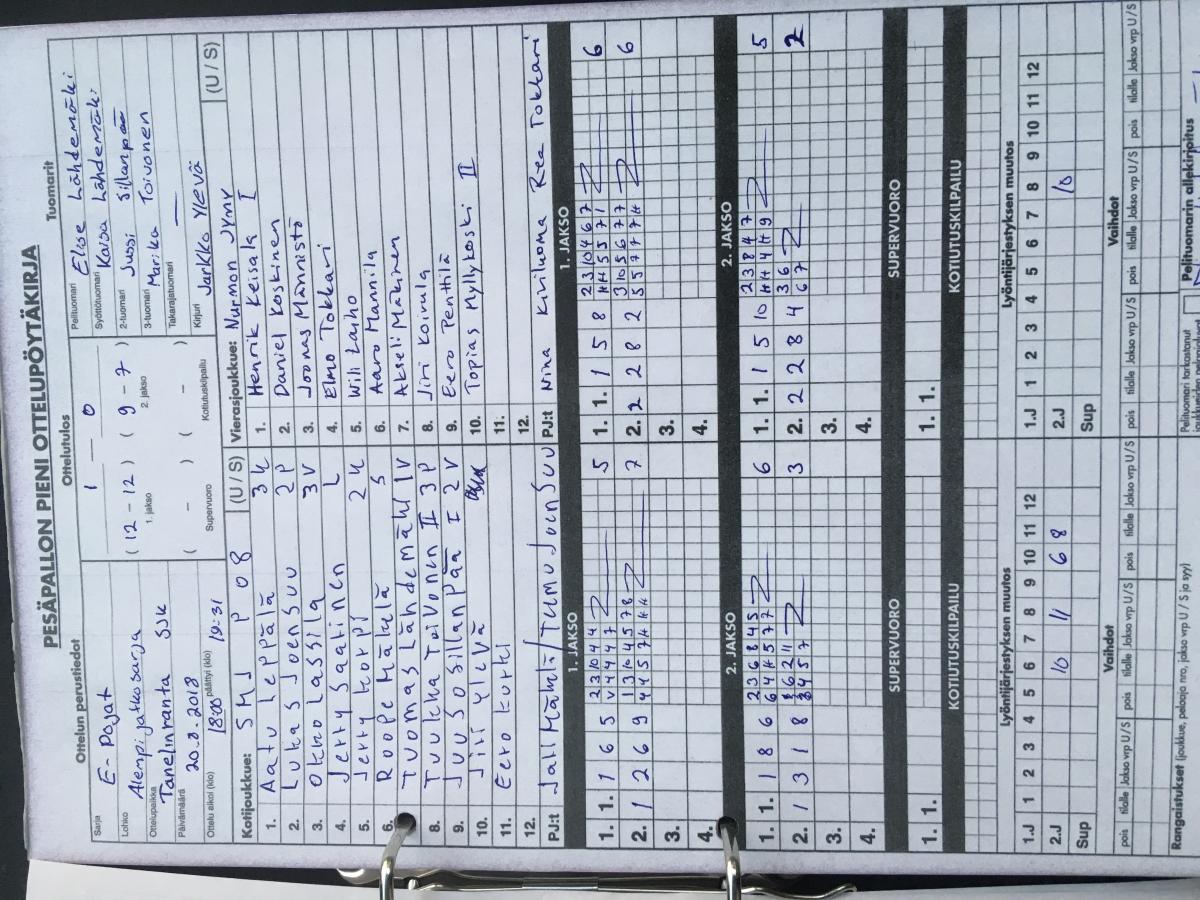 PESÄPALLON PIENI OTTELUPÖYTÄKIRJA
Ottelun perustiedot
Ottelutulos
Tuomarit
Sarja E-Pojat
Lohko Alempi jatkosarja
Ottelupaikka Tanelinranta SJK
Päivämäärä 20.8.2018
Ottelu alkoi (klo) 18:00 päättyi (klo) 19:31
1 — 0
( 12 - 12 ) ( 9 - 7 )
1. jakso 2. jakso
( - ) ( - )
Supervuoro Kotiutuskilpailu
Pelituomari Elise Lähdemäki
Syöttötuomari Kaisa Lähdemäki
2-tuomari Jussi Sillanpää
3-tuomari Marika Toivonen
Takarajatuomari —
Kirjuri Jarkko Ylevä
Kotijoukkue: SMJ P08 (U / S)
1. Aatu Leppälä 3 U
2. Lukas Joensuu 2 P
3. Okko Lassila 3 V
4. Jerry Saatinen L
5. Jerry Korpi 2 U
6. Roope Mäkelä S
7. Tuomas Lähdemäki 1 V
8. Tuukka Toivonen II 3 P
9. Juuso Sillanpää I 2 V
10. Jiri Ylevä
11. Eero Kurki
12.
PJ:t Jali Hämäl / Teemu Joensuu
Vierasjoukkue: Nurmon JYMY (U / S)
1. Henrik Keisala I
2. Daniel Koskinen
3. Joonas Männistö
4. Elmo Tokkari
5. Wili Laiho
6. Aaro Mannila
7. Akseli Mäkinen
8. Jiri Koivula
9. Eero Penttilä
10. Topias Myllykoski II
11.
12.
PJ:t Nina Kiviluoma Rea Tokkari
1. JAKSO
1. 1. 1 6 5
5
2. 1 2 6 9
7
3.
4.
1. JAKSO
1. 1. 1 5 8
2 3 10 4 6 7
6
2. 2 2 8 2
3 10 5 6 7 7
6
3.
4.
2. JAKSO
1. 1. 1 8 6
2 3 6 8 4 5
6
2. 1 3 1 8
3
3.
4.
2. JAKSO
1. 1. 1 5 10
2 3 8 4 7
5
2. 2 2 8 4
3 6
6 7
2
3.
4.
SUPERVUORO
1. 1.
SUPERVUORO
1. 1.
KOTIUTUSKILPAILU
KOTIUTUSKILPAILU
Lyöntijärjestyksen muutos
1.J 1 2 3 4 5 6 7 8 9 10 11 12
2.J 10 11 6 8
Sup
Lyöntijärjestyksen muutos
1.J 1 2 3 4 5 6 7 8 9 10 11 12
2.J 10
Sup
Vaihdot
pois tilalle Jakso vrp U / S pois tilalle Jakso vrp U / S pois tilalle Jakso vrp U / S
Vaihdot
pois tilalle Jakso vrp U / S pois tilalle Jakso vrp U / S pois tilalle Jakso vrp U / S
Rangaistukset (joukkue, pelaaja nro, jakso vrp U / S ja syy)
Pelituomari tarkastanut
Pelituomarin allekirjoitus